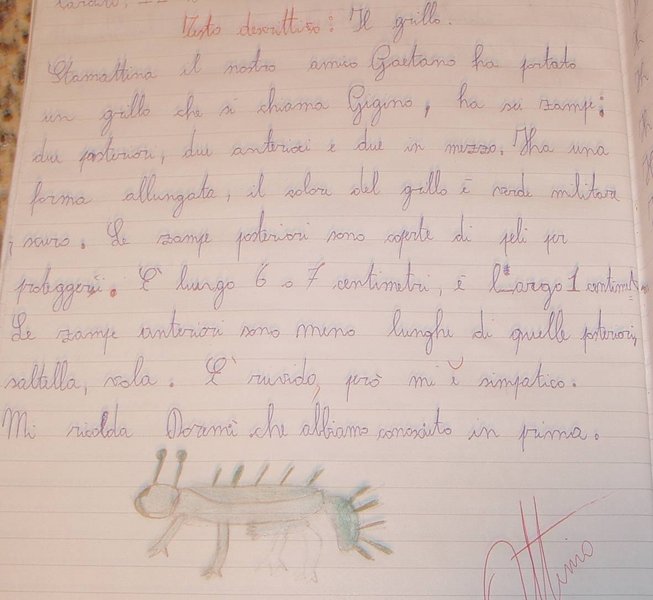 Testo descrittivo: Il grillo.
Stamattina il nostro amico Gaetano ha portato
un grillo che si chiama Gigino, ha sei zampe:
due posteriori, due anteriori e due in mezzo. Ha una
forma allungata, il colore del grillo è verde militare
scuro. Le zampe posteriori sono coperte di peli per
proteggersi. È lungo 6 o 7 centimetri, è largo 1 centimetro
Le zampe anteriori sono meno lunghe di quelle posteriori,
saltella, vola. È ruvido, però mi è simpatico.
Mi ricorda Doremì che abbiamo conosciuto in prima.
Ottimo